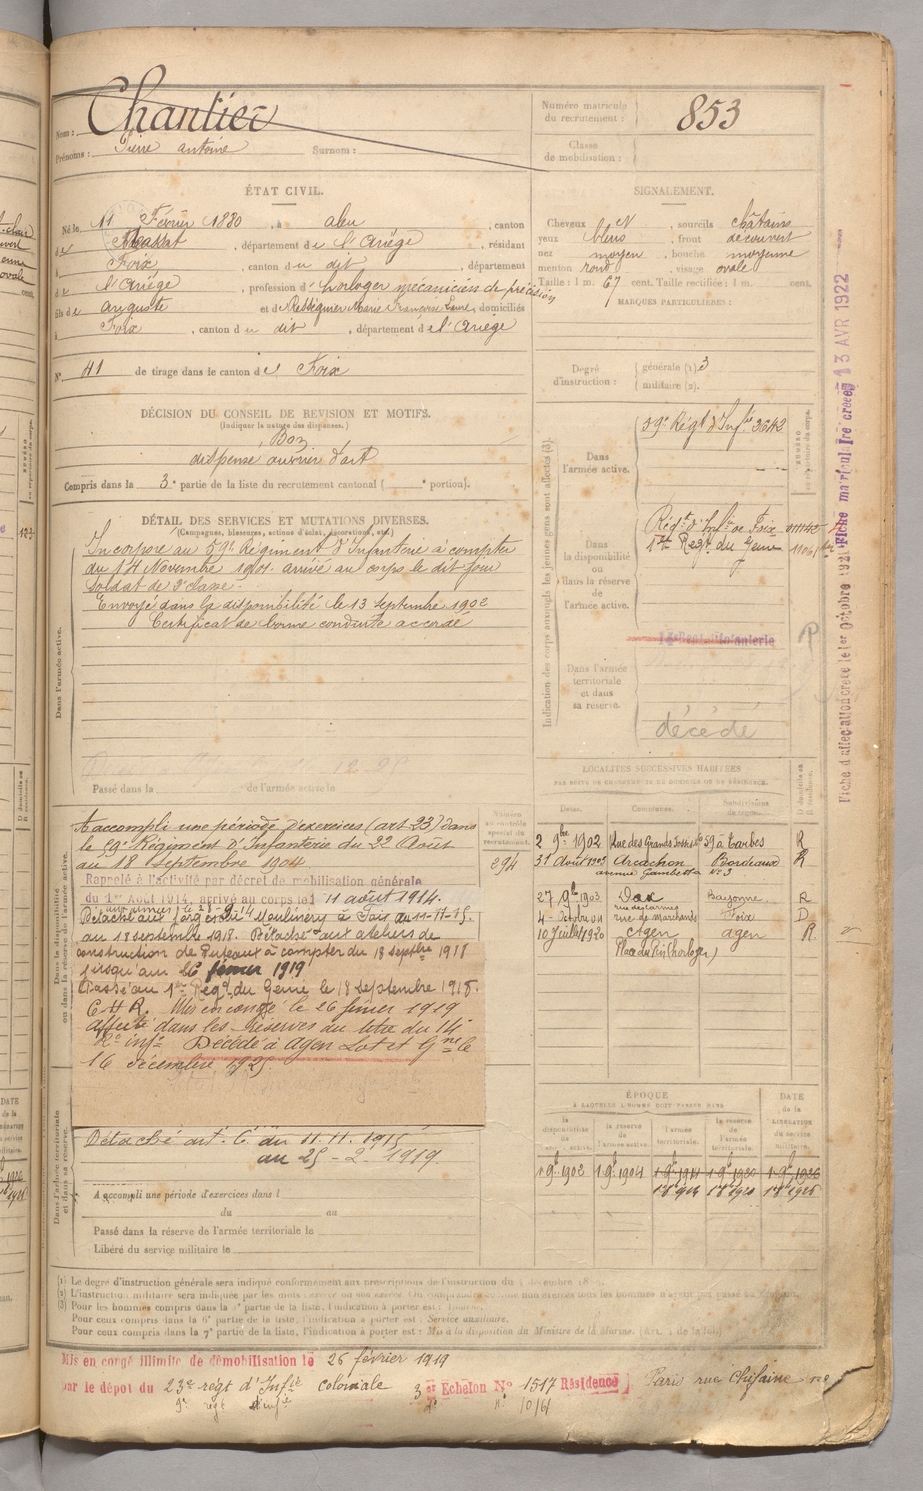 Nom : Chantier
Prénoms : Pierre antoine Surnom :
Numéro matricule du recrutement : 853
Classe de mobilisation :
ÉTAT CIVIL.
Né le 11 Février 1880, à aleu, canton
de Massat, département de l'Ariége, résidant
à Foix, canton du dit, département
de l'Ariége, profession d'horloger mécanicien de précision
fils de auguste et de Rességuier Marie Françoise, domiciliés
à Foix, canton du dit, département de l'Ariége
N° 41 de tirage dans le canton de Foix
SIGNALEMENT.
Cheveux, sourcils châtains
yeux bleus, front découvert
nez moyen, bouche moyenne
menton rond, visage ovale
Taille : 1 m. 67 cent. Taille rectifiée : 1 m. cent.
MARQUES PARTICULIÈRES :
Degré d'instruction : générale (1) 3
militaire (2).
DÉCISION DU CONSEIL DE REVISION ET MOTIFS.
(Indiquer la nature des dispenses.)
Bon
dispense ouvrier d'art
Compris dans la 3e partie de la liste du recrutement cantonal ( e portion).
DÉTAIL DES SERVICES ET MUTATIONS DIVERSES.
(Campagnes, blessures, actions d'éclat, décorations, etc.)
Dans l'armée active.
Incorporé au 59e Régiment d'Infanterie à compter
du 14 Novembre 1901. arrivé au corps le dit jour
soldat de 2e classe.
Envoyé dans la disponibilité le 13 Septembre 1902
Certificat de bonne conduite accordé
Passé dans la de l'armée active le
Indication des corps auxquels les jeunes gens sont affectés (3).
Dans l'armée active.
59e Régt d'Infie 3642
Dans la disponibilité ou dans la réserve de l'armée active.
Régt d'Infie de Foix
1er Regt du Génie
Dans l'armée territoriale et dans sa réserve.
décédé
Fiche d'affectation créée le 1er Octobre 1921
Fiche matriculaire créée 13 AVR 1922
Dans la disponibilité ou dans la réserve de l'armée active.
A accompli une période d'exercices (art 23) dans
le 59e Régiment d'Infanterie du 22 Août
au 18 septembre 1904
Rappelé à l'activité par décret de mobilisation générale
du 1er Août 1914, arrivé au corps le 11 août 1914.
Détaché aux forges du Moulinery à Foix au 11-11-15.
au 18 septembre 1918. Détaché aux ateliers de
construction de Puteaux à compter du 18 septbre 1918
jusqu'au 26 février 1919
Passé au 1er Régt du Génie le 18 septembre 1918.
C + R. Mis en congé le 26 février 1919
affecté dans les Réserves du 14
Rt infie Décédé à Agen Lot et Gne le
16 décembre 1925.
Numéro au contrôle spécial du recrutement.
294
LOCALITÉS SUCCESSIVES HABITÉES
PAR SUITE DE CHANGEMENT DE DOMICILE OU DE RÉSIDENCE.
Dates. Communes. Subdivisions de région. D domicile ou R résidence.
2 9bre 1902 Rue des Grands Fossés 59 à Tarbes R
31 août 1903 Arcachon Bordeaux R
avenue Gambetta N° 3
27 9bre 1903 Dax Bayonne R
rue des Carmes
4 - Octobre 04 rue de marchands Foix D
10 Juillet 1920 Agen agen R
Place du Pin (horloger)
ÉPOQUE
À LAQUELLE L'HOMME DOIT PASSER DANS
la disponibilité de l'armée active. la réserve de l'armée active. l'armée territoriale. la réserve de l'armée territoriale.
DATE de la LIBÉRATION du service militaire.
1 9b 1902 1 9b 1904 1 9b 1914 1 9b 1920 1 9b 1926
Dans l'armée territoriale et dans sa réserve.
Détaché art. 6. du 11.11.1915
au 25-2-1919.
A accompli une période d'exercices dans l
du au
Passé dans la réserve de l'armée territoriale le
Libéré du service militaire le
(1) Le degré d'instruction générale sera indiqué conformément aux prescriptions de l'instruction du
(3) Pour les hommes compris dans la partie de la liste, l'indication à porter est :
Pour ceux compris dans la 6e partie de la liste, l'indication à porter est : Service auxiliaire.
Pour ceux compris dans la 7e partie de la liste, l'indication à porter est : Mis à la disposition du Ministre de la Marine.
Mis en congé illimité de démobilisation le 26 février 1919
par le dépôt du 23e régt d'Infie coloniale 3e Echelon N° 1517 Résidence Paris rue
9e régt d'infie